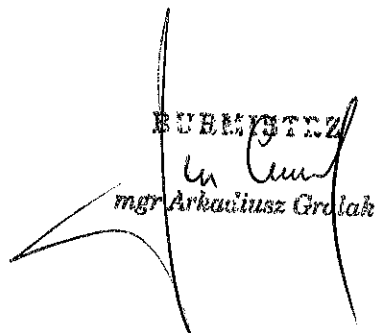 BURMISTRZ
mgr Arkadiusz Grolak